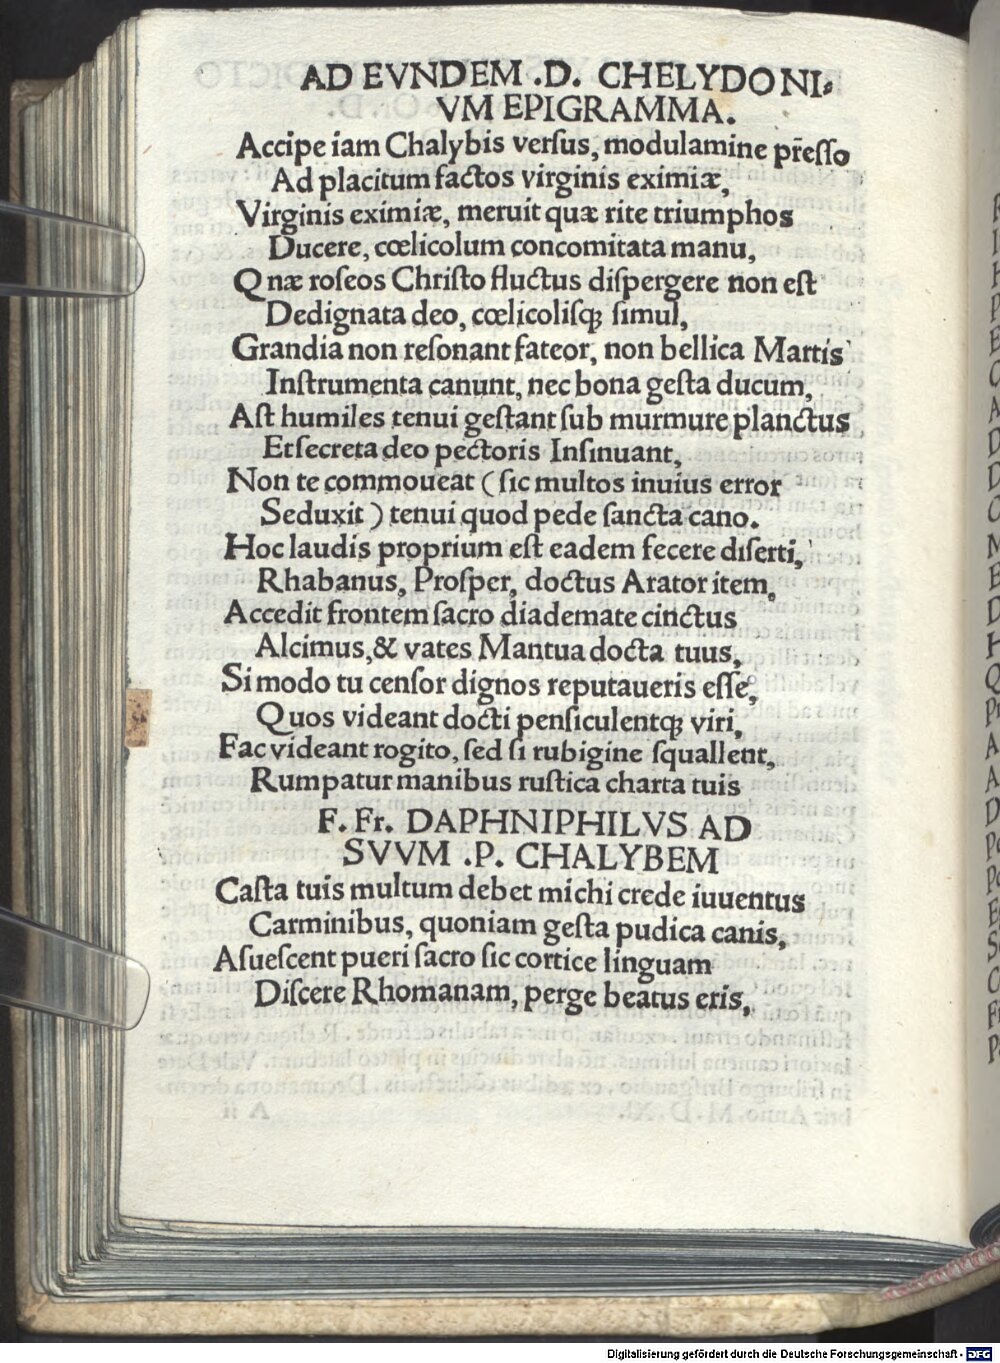 AD EVNDEM .D. CHELYDONI⸗
VM EPIGRAMMA.
Accipe iam Chalybis verſus, modulamine p̄reſſo
Ad placitum factos virginis eximiæ,
Virginis eximiæ, meruit quæ rite triumphos
Ducere, cœlicolum concomitata manu,
Quæ roſeos Chriſto fluctus diſpergere non eſt
Dedignata deo, cœlicoliſqꝫ ſimul,
Grandia non reſonant fateor, non bellica Martis
Inſtrumenta canunt, nec bona geſta ducum,
Aſt humiles tenui geſtant ſub murmure planctus
Et ſecreta deo pectoris Inſinuant,
Non te commoueat (ſic multos inuius error
Seduxit) tenui quod pede ſancta cano.
Hoc laudis proprium eſt eadem fecere diſerti,
Rhabanus, Proſper, doctus Arator item,
Accedit frontem ſacro diademate cinctus
Alcimus, & vates Mantua docta tuus,
Si modo tu cenſor dignos reputaueris eſſe,
Quos videant docti penſiculentqꝫ viri,
Fac videant rogito, ſed ſi rubigine ſquallent,
Rumpatur manibus ruſtica charta tuis
F. Fr. DAPHNIPHILVS AD
SVVM .P. CHALYBEM
Caſta tuis multum debet michi crede iuuentus
Carminibus, quoniam geſta pudica canis,
Aſueſcent pueri ſacro ſic cortice linguam
Diſcere Rhomanam, perge beatus eris,
Digitalisierung gefördert durch die Deutsche Forschungsgemeinschaft - DFG